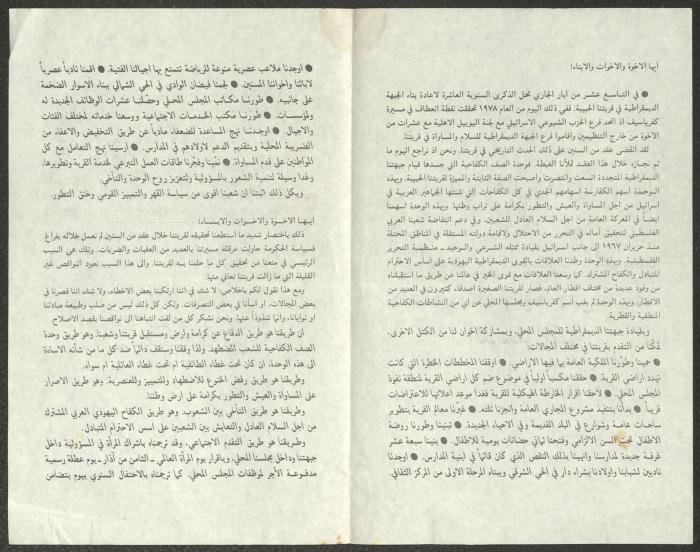 ايها الاخوة والاخوات والابناء!
● في التاسع عشر من ايار الجاري تحل الذكرى السنوية العاشرة لاعادة بناء الجبهة
الديمقراطية في قريتنا الحبيبة. ففي ذلك اليوم من العام ١٩٧٨ تحققت نقطة انعطاف في مسيرة
كفرياسيف اذ اتحد فرع الحزب الشيوعي الاسرائيلي مع لجنة اليوبيل الاهلية مع عشرات من
الاخوة من خارج التنظيمين واقاموا فرع الجبهة الديمقراطية للسلام والمساواة في قريتنا.
لقد انقضى عقد من السنين على ذلك الحدث التاريخي في قريتنا. ونحن اذ نراجع اليوم ما
تم انجازه خلال هذا العقد لملأنا الغبطة. فوحدة الصف الكفاحية التي جسدها قيام جبهتنا
الديمقراطية المتجددة اتسعت وانتصرت واصبحت الصفة الثابتة والمميزة لقريتنا الحبيبة. وبهذه
الوحدة اسهم الكفارسة اسهامهم المجدي في كل الكفاحات التي شنتها الجماهير العربية في
اسرائيل من اجل المساواة والعيش والتطور بكرامة على تراب وطنها. وبهذه الوحدة اسهمنا
ايضاً في المعركة العامة من اجل السلام العادل للشعبين، وفي دعم انتفاضة شعبنا العربي
الفلسطيني لتحقيق آماله في التحرر من الاحتلال ولاقامة دولته المستقلة في المناطق المحتلة
منذ حزيران ١٩٦٧ الى جانب اسرائيل بقيادة ممثله الشرعي والوحيد ـ منظمة التحرير
الفلسطينية. وبهذه الوحدة وطدنا العلاقات بالقوى الديمقراطية اليهودية على اساس الاحترام
المتبادل والكفاح المشترك. كما وسعنا العلاقات مع قوى الخير في عالمنا عن طريق ما استقبلناه
من وفود عديدة من مختلف اقطار العالم. فصار لقريتنا الصغيرة اصدقاء كثيرون في العديد من
الاقطار. وبهذه الوحدة لم يغب اسم كفرياسيف ومجلسها المحلي عن اي من النشاطات الكفاحية
المنطقية والقطرية.
وبقيادة جبهتنا الديمقراطية للمجلس المحلي، وبمشاركة اخوان لنا من الكتل الاخرى،
تمكنا من التقدم بقريتنا في مختلف المجالات:
● حمينا وطورنا الملكية العامة بما فيها الاراضي. ● اوقفنا المخططات الخطرة التي كانت
تهدد اراضي القرية. ● حققنا مكسباً اولياً في موضوع ضم كل اراضي القرية لمنطقة نفوذ
المجلس المحلي. ● لاحقنا اقرار الخارطة الهيكلية للقرية فغدا موعد اعلانها للاعتراضات
قريباً. ● بدأنا بتنفيذ مشروع المجاري العامة وانجزنا ثلثه. ● غيرنا معالم القرية بتطوير
ساحات عامة وشوارع في البلد القديمة وفي الاحياء الجديدة. ● تبنينا وطورنا روضة
الاطفال تحت السن الالزامي وفتحنا ثماني حضانات يومية للاطفال. ● بنينا سبعة عشر
غرفة جديدة لمدارسنا وانهينا بذلك النقص الذي كان قائماً في ابنية المدارس. ● اوجدنا
ناديين لشبابنا واولادنا بشراء دار في الحي الشرقي وببناء المرحلة الاولى من المركز الثقافي.
● اوجدنا ملاعب عصرية متنوعة للرياضة تتمتع بها اجيالنا الفتية. ● اقمنا نادياً عصرياً
لابائنا واخواننا المسنين. ● لجمنا فيضان الوادي في الحي الشمالي ببناء الاسوار الضخمة
على جانبيه. ● طورنا مكاتب المجلس المحلي وحصلنا عشرات الوظائف الجديدة له
ولمؤسساته. ● طورنا مكتب الخدمات الاجتماعية ووسعنا خدماته لمختلف الفئات
والاجيال. ● اوجدنا نهج المساعدة للضعفاء مادياً عن طريق التخفيض والاعفاء من
الضريبة المحلية وبتقديم الدعم لاولادهم في المدارس. ● ارسينا نهج التعامل مع كل
المواطنين على قدم المساواة. ● نمينا وفجرنا طاقات العمل التبرعي لخدمة القرية وتطويرها،
وغدا وسيلة لتنمية الشعور بالمسؤولية ولتعزيز روح الوحدة والتآخي.
وبكل ذلك اثبتنا ان شعبنا اقوى من سياسة القهر والتمييز القومي وخنق التطور.
ايها الاخوة والاخوات والابناء:
ذلك باختصار شديد ما استطعنا تحقيقه لقريتنا خلال عقد من السنين لم نعمل خلاله بفراغ.
فسياسة الحكومة حاولت عرقلة مسيرتنا بالعديد من العقبات والضربات. وتلك هي السبب
الرئيسي في منعنا من تحقيق كل ما حلمنا به لقريتنا. والى هذا السبب تعود النواقص غير
القليلة التي ما زالت قريتنا تعاني منها.
ومع هذا نقول لكم باخلاص: لا شك في اننا ارتكبنا بعض الاخطاء، ولا شك اننا قصرنا في
بعض المجالات، او اسأنا في بعض التصرفات. ولكن كل ذلك ليس من صلب وطبيعة مبادئنا
او نوايانا، وانما شذوذاً عنها. ونحن نشكر كل من لفت انتباهنا الى نواقصنا بقصد الاصلاح.
ان طريقنا هو طريق الدفاع عن كرامة وارض ومستقبل قريتنا وشعبنا. وهو طريق وحدة
الصف الكفاحية للشعب المضطهد. ولذا وقفنا وسنقف دائماً ضد كل ما من شأنه الاساءة
الى هذه الوحدة، ان كان تحت غطاء الطائفية ام تحت غطاء العائلية ام سواه.
وطريقنا هو طريق رفض الخنوع للاضطهاد وللتمييز وللعنصرية. وهو طريق الاصرار
على المساواة والعيش والتطور بكرامة على ارض وطننا.
وطريقنا هو طريق التآخي بين الشعوب. وهو طريق الكفاح اليهودي العربي المشترك
من اجل السلام العادل والتعايش بين الشعبين على اسس الاحترام المتبادل.
وطريقنا هو طريق التقدم الاجتماعي. وقد ترجمناه باشراك المرأة في المسؤولية داخل
جبهتنا وداخل مجلسنا المحلي، وباقرار يوم المرأة العالمي ـ الثامن من آذار ـ يوم عطلة رسمية
مدفوعة الأجر لموظفات المجلس المحلي. كما ترجمناه بالاحتفال السنوي بيوم يتضامن